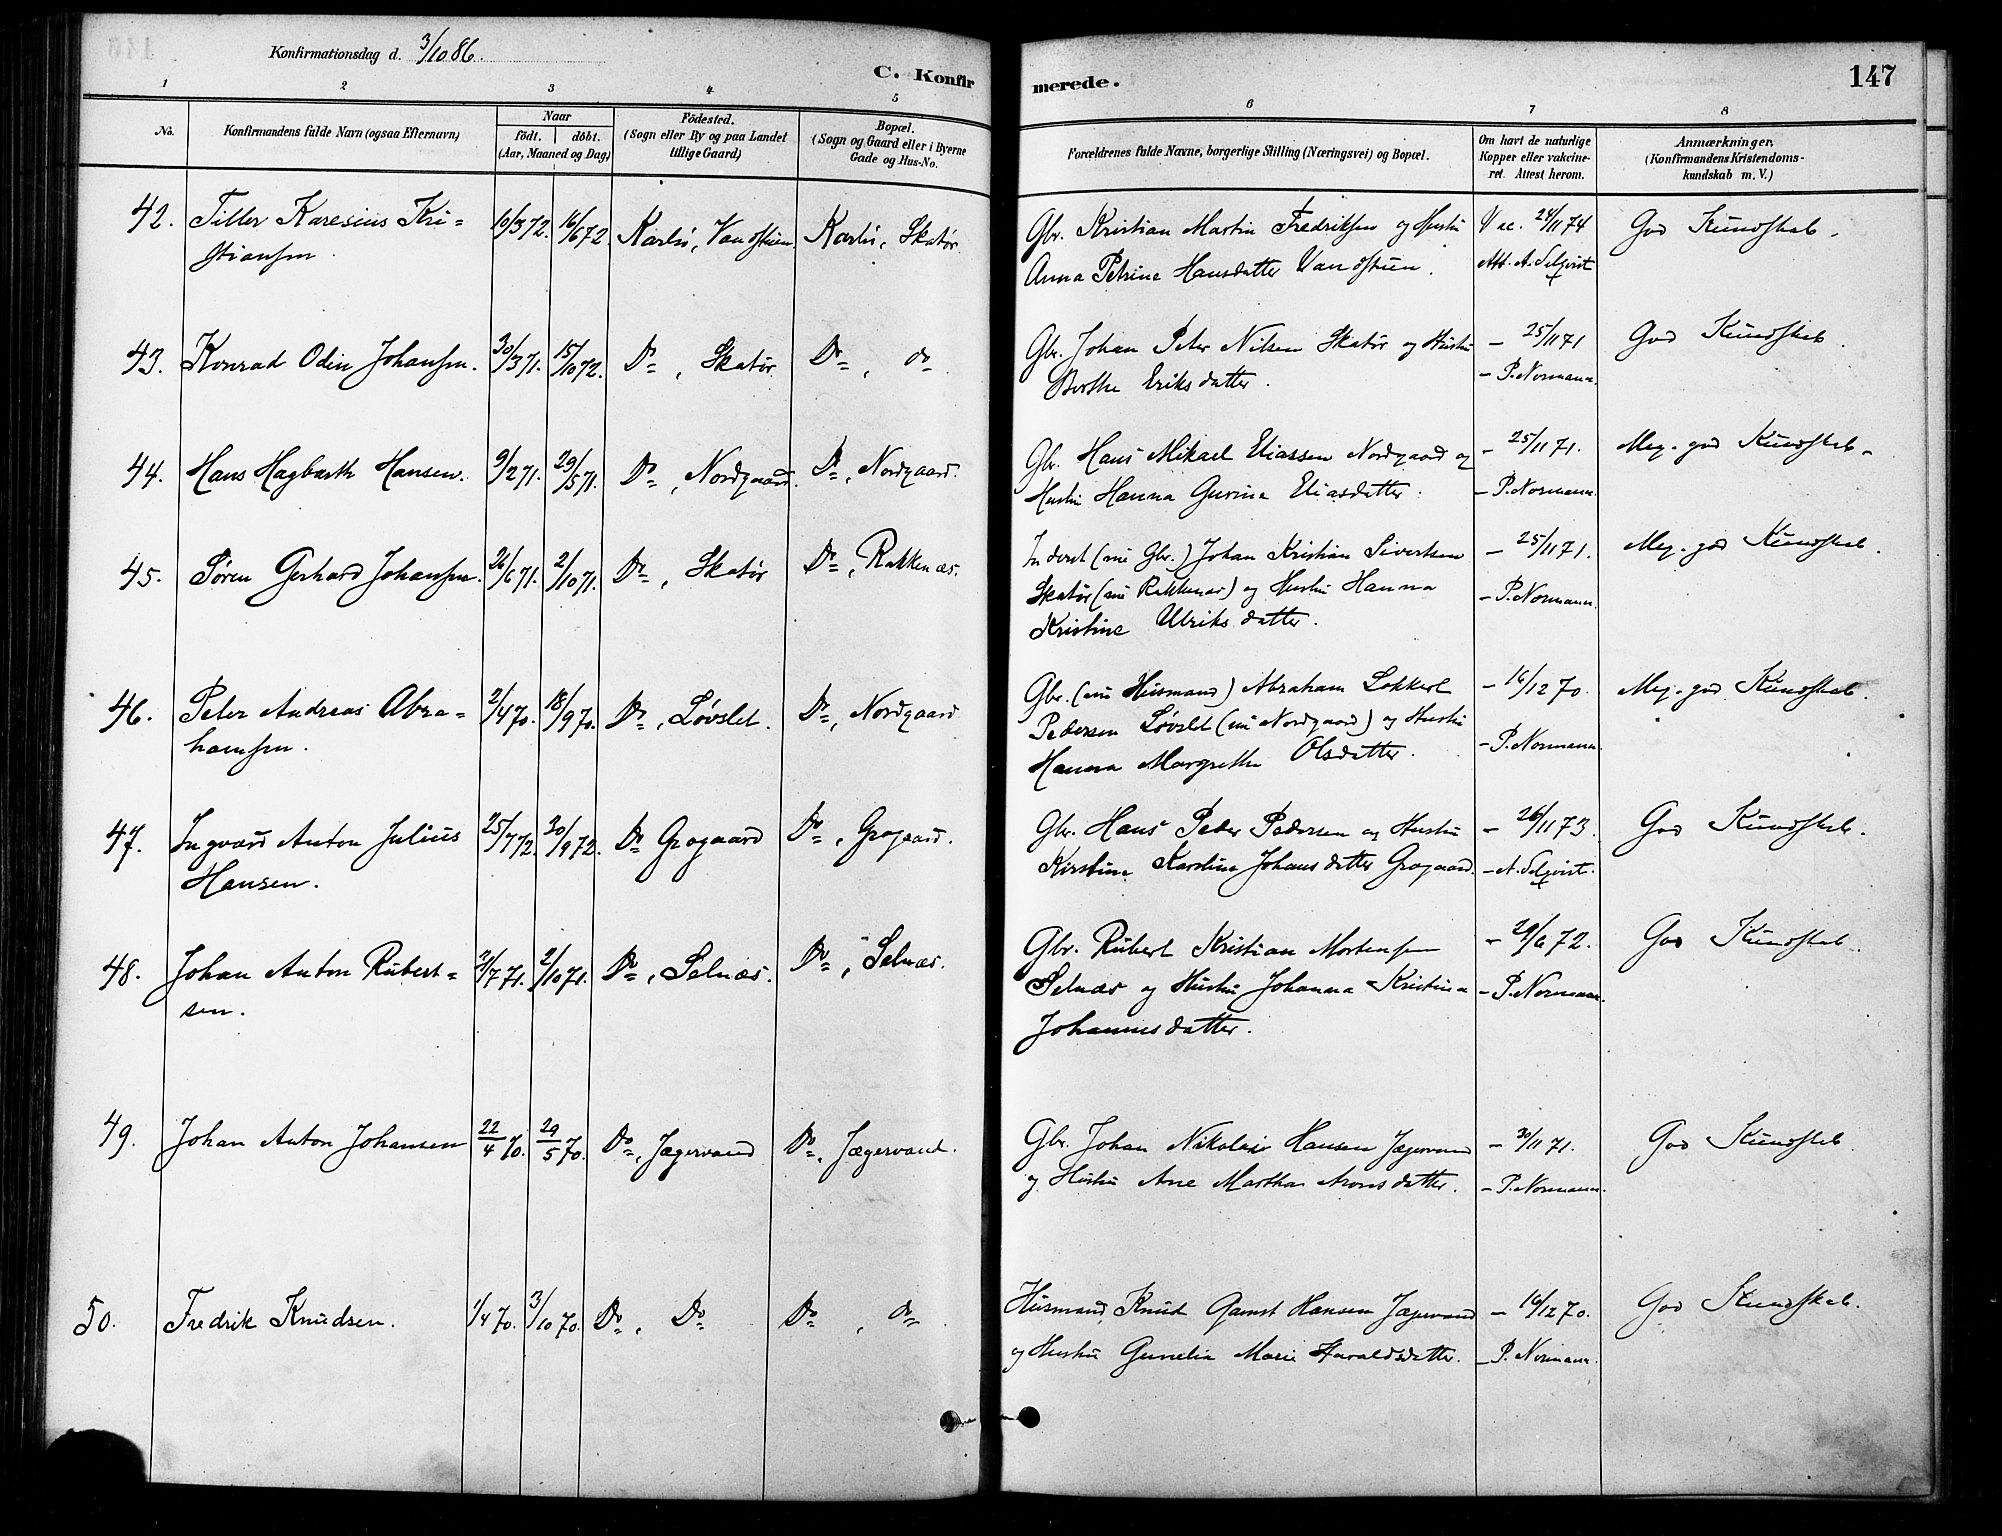 Konfirmationsdag d. 3/10 86.
C. Konfirmerede.
147
1 2 3 4 5 6 7 8
No.
Konfirmandens fulde Navn (ogsaa Efternavn)
Naar
födt. döbt.
(Aar, Maaned og Dag)
Födested.
(Sogn eller By og paa Landet
tillige Gaard)
Bopæl.
(Sogn og Gaard eller i Byerne
Gade og Hus-No.
Forældrenes fulde Navne, borgerlige Stilling (Næringsvei) og Bopæl.
Om havt de naturlige
Kopper eller vakcine-
ret. Attest herom.
Anmærkninger.
(Konfirmandens Kristendoms-
kundskab m. V.)
42. Tiller Karesius Kri- 10/3 72. 16/6 72 Karlsö, Vandstuen Karlsö, Skatør Gbr. Kristian Martin Fredriksen og Hustru Vac. 24/11 74 God Kundskab.
stiansen. Anna Petrine Hansdatter Vandstuen. Att. A. Selqvist
43. Konrad Odin Johansen. 30/3 71. 15/10 72. Do, Skatør Do, do Gbr. Johan Peter Nilsen Skatør og Hustru - 25/11 71 God Kundskab.
Berthe Eriksdatter. - P. Normann.
44. Hans Hagbarth Hansen. 9/2 71. 29/5 71. Do, Nordgaard. Do, Nordgaard. Gbr. Hans Mikael Eliassen Nordgaard og - 25/11 71. Meg. god Kundskab.
Hustru Hanna Gurina Eliasdatter. - P. Normann.
45. Søren Gerhard Johansen. 26/6 71. 2/10 71. Do, Skatør Do, Rakkenæs. Inderst (nu Gbr.) Johan Kristian Sivertsen - 25/11 71. Meg. god Kundskab.
Skatør (nu Rakkenæs) og Hustru Hanna - P. Normann.
Kristine Ulriksdatter.
46. Peter Andreas Abra- 2/4 70. 18/9 70. Do, Løvslet. Do, Nordgaard Gbr. (nu Husmand) Abraham Lokkert - 16/12 70. Meg. god Kundskab.
hamsen. Pedersen Løvslet (nu Nordgaard) og Hustru - P. Normann.
Hanna Margrethe Olsdatter.
47. Ingvard Anton Julius 25/7 72. 30/9 72. Do Grogaard Do, Grogaard. Gbr. Hans Peder Pedersen og Hustru - 26/11 73. God Kundskab.
Hansen. Kirstine Karoline Johansdatter Grogaard. - A. Selqvist.
48. Johan Anton Rubert- 2/7 71. 2/10 71. Do, Selnæs. Do, Selnæs. Gbr. Rubert Kristian Mortensen - 29/6 72. God Kundskab.
sen. Selnæs og Hustru Johanna Kristina - P. Normann.
Johannesdatter.
49. Johan Anton Johansen 22/4 70. 29/5 70. Do, Jægervand Do, Jægervand. Gbr. Johan Nikolai Hansen Jægervand - 30/11 71. God Kundskab.
og Hustru Ane Martha Aronsdatter. - P. Normann.
50. Fredrik Knudsen. 1/4 70. 3/10 70. Do, Do Do, do Husmand Knud Gamst Hansen Jægervand - 16/12 70. God Kundskab.
og Hustru Gunelia Marie Haraldsdatter. - P. Normann.